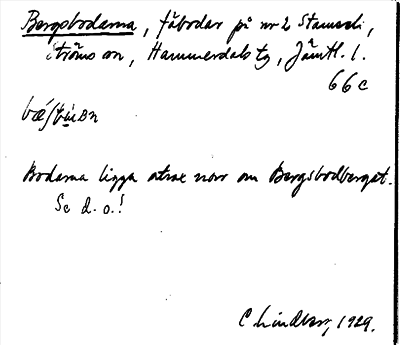 Bergsbodarna, fäbodar på nr 2 Stamsele,
Ströms sn, Hammerdals tg, Jämtl. l.
66c
Bodarna ligga strax norr om Bergsbodberget.
Se d. o.!
C Lindberg, 1929.